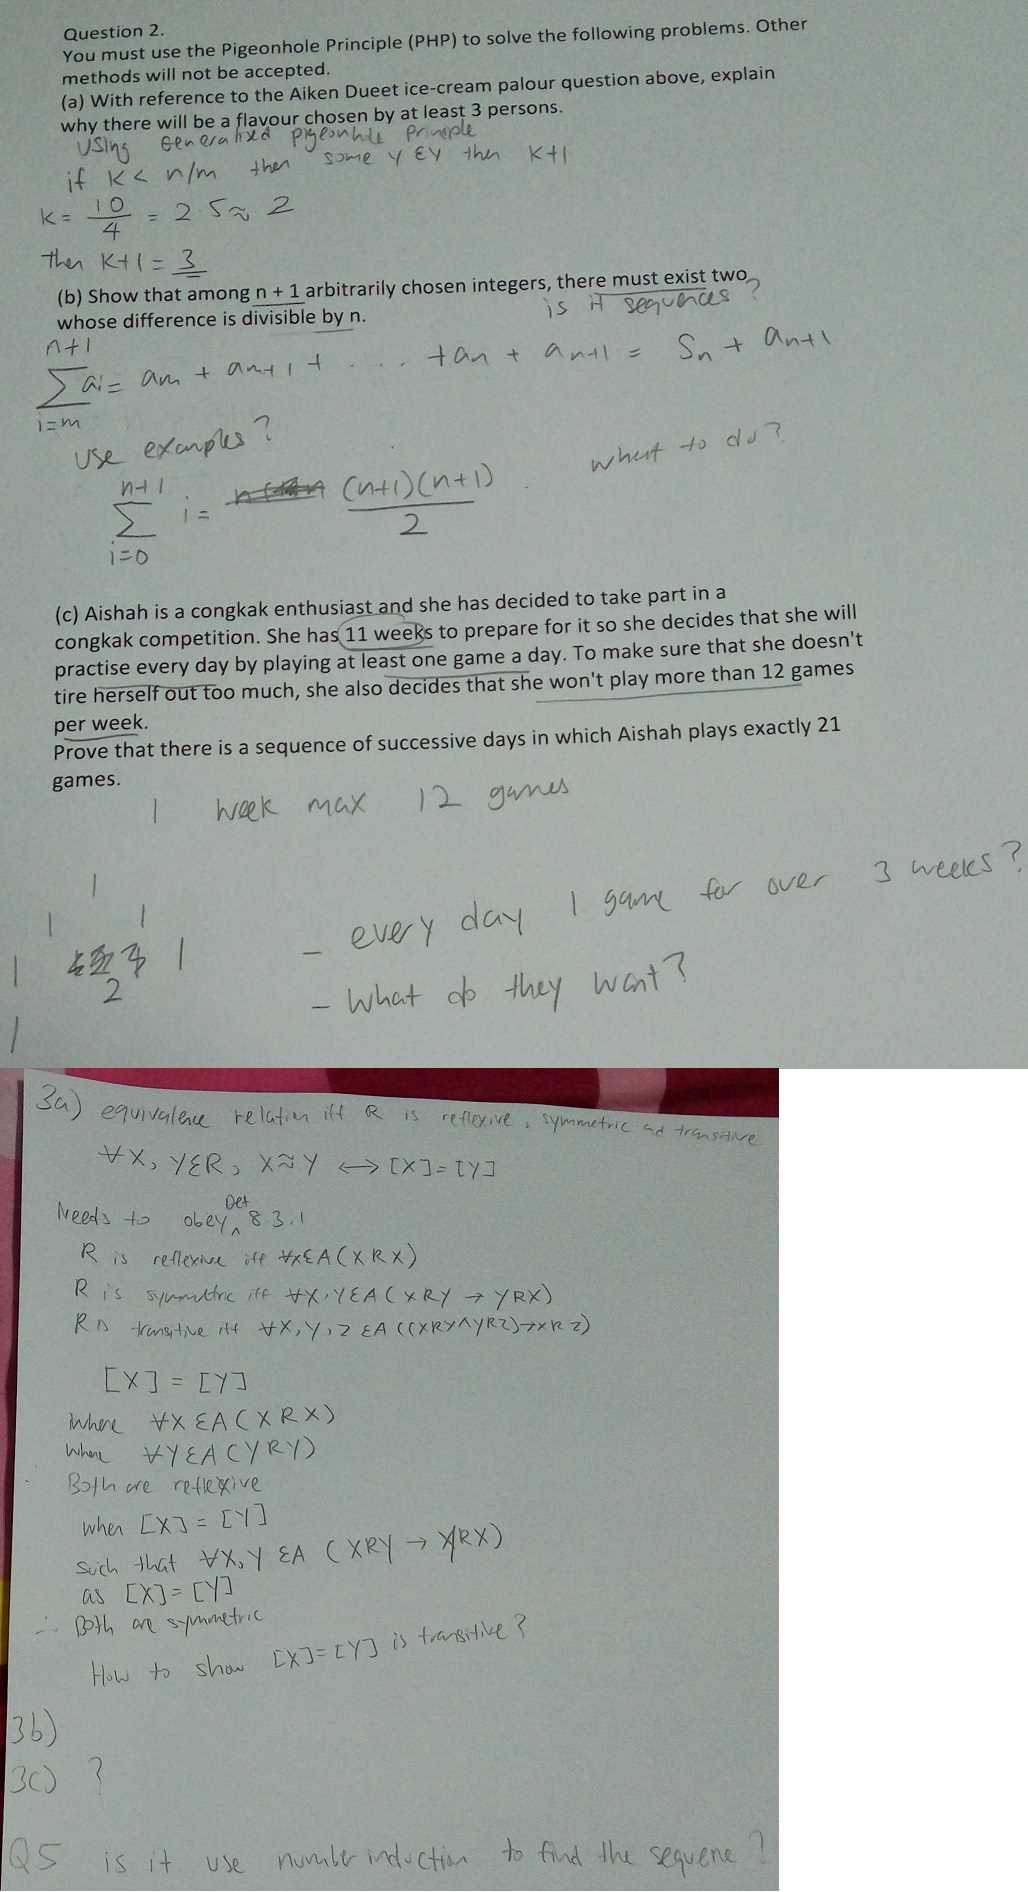 Question 2.
You must use the Pigeonhole Principle (PHP) to solve the following problems. Other
methods will not be accepted.
(a) With reference to the Aiken Dueet ice-cream palour question above, explain
why there will be a flavour chosen by at least 3 persons.
Using Generalized pigeonhole Principle
if K < n/m then some y ∈ Y then K+1
K = 10/4 = 2.5 ≈ 2
then K+1 = 3
(b) Show that among n + 1 arbitrarily chosen integers, there must exist two
whose difference is divisible by n.
is it sequences?
n+1
∑ ai = am + am+1 + ... + an + an+1 = Sn + an+1
i=m
use examples?
what to do?
n+1
∑ i = (n+1)(n+1)/2
i=0
(c) Aishah is a congkak enthusiast and she has decided to take part in a
congkak competition. She has 11 weeks to prepare for it so she decides that she will
practise every day by playing at least one game a day. To make sure that she doesn't
tire herself out too much, she also decides that she won't play more than 12 games
per week.
Prove that there is a sequence of successive days in which Aishah plays exactly 21
games.
1 week max 12 games
1
1 1
1 1
2
1
- every day 1 game for over 3 weeks?
- What do they want?
3a) equivalence relation iff R is reflexive, symmetric and transitive
∀X, Y∈R, X≈Y ↔ [X]=[Y]
Needs to obey Def 8.3.1
R is reflexive iff ∀x∈A(XRX)
R is symmetric iff ∀X,Y∈A(XRY → YRX)
R is transitive iff ∀X,Y,Z∈A((XRY∧YRZ)→XRZ)
[X] = [Y]
Where ∀X∈A(XRX)
Where ∀Y∈A(YRY)
Both are reflexive
when [X] = [Y]
Such that ∀X,Y∈A (XRY → YRX)
as [X]=[Y]
∴ Both are symmetric
How to show [X]=[Y] is transitive?
3b)
3c) ?
Q5 is it use number induction to find the sequene?